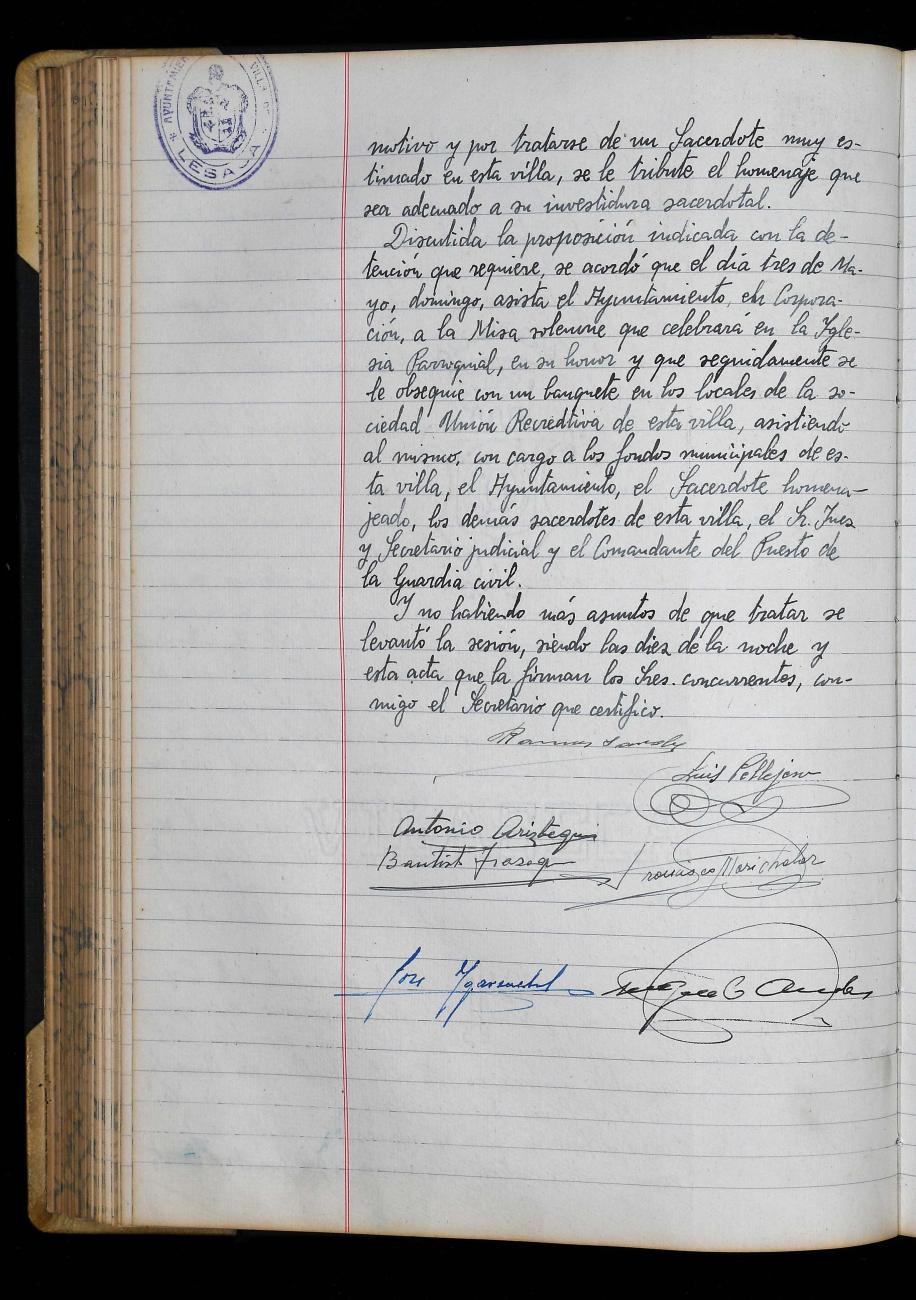 AYUNTAMIEN VILLA DE
* LESACA *
motivo y por tratarse de un Sacerdote muy es-
timado en esta villa, se le tribute el homenaje que
sea adecuado a su investidura sacerdotal.
Discutida la proposición indicada con la de-
tención que requiere, se acordó que el día tres de Ma-
yo, domingo, asista el Ayuntamiento, en Corpora-
ción, a la Misa solemne que celebrará en la Igle-
sia Parroquial, en su honor y que seguidamente se
le obsequie con un banquete en los locales de la so-
ciedad Unión Recreativa de esta villa, asistiendo
al mismo, con cargo a los fondos municipales de es-
ta villa, el Ayuntamiento, el Sacerdote homena-
jeado, los demás sacerdotes de esta villa, el Sr. Juez
y Secretario judicial y el Comandante del Puesto de
la Guardia civil.
Y no habiendo más asuntos de que tratar se
levantó la sesión, siendo las diez de la noche y
esta acta que la firman los Sres. concurrentes, con-
migo el Secretario que certifico.
Luis Pellejero
Antonio Aristegui
Bautist
Francisco Marichalar
José